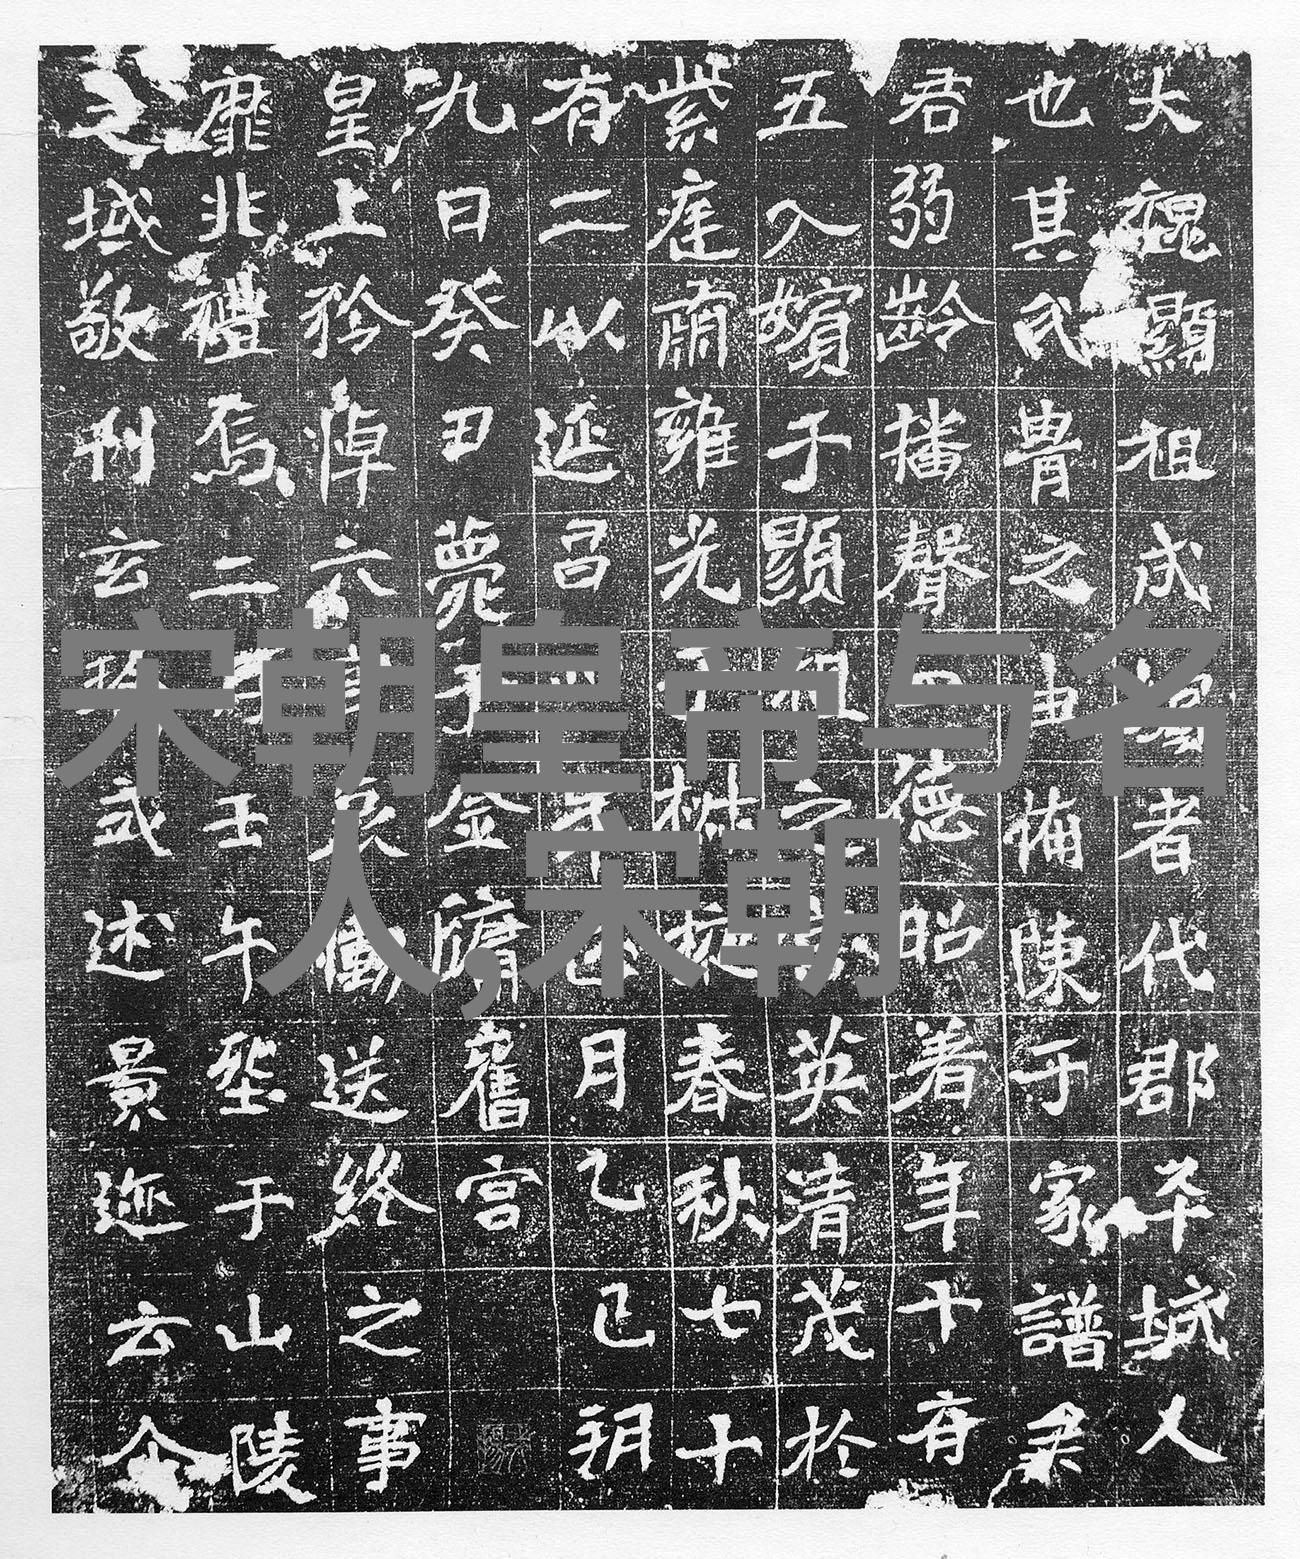 大魏顯祖成嬪者代郡平城人
也其氏冑之由備陳于家譜
君弱齡播聲四德昭著年十有
五入嬪于顯祖之英清茂於
紫庭肅雍光于椒掖春秋七十
有二以延昌年正月乙巳朔
九日癸丑薨于金墉舊宮
皇上矜悼六宮哀慟送終之事
靡非禮焉二月壬午塟于山陵
之域敬刊玄式述景迹云尒
宋朝皇帝与名
人,宋朝